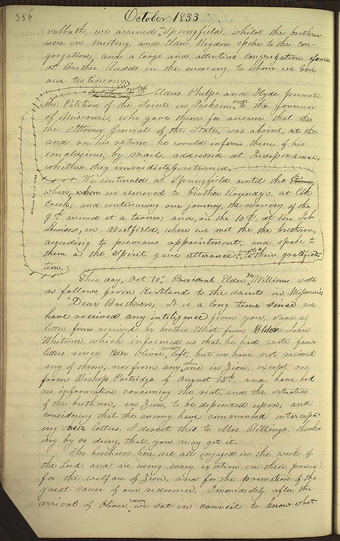 356 October 1833
sabbath, we arrived Springfield, whilst the brethren
were in meeting, and Elder Rigdon spoke to the con-
gregation, and a large and attentive congregation
at Brother Rudds in the evening to whom we bore
our testimony.
Elders Phelps and Hyde presented
the Petition of the Saints in Jackson to the Governor
of Missouri, who gave them for answer that
the Attorney General of the State, was absent,
and on his return he would inform them of his
conclusions, by mail, addressed at Independence,
whither they immediately returned.
We continued at Springfield until the
when, we removed to Brother Roundys, at Elk
Creek, and continuing our journey, the evening of the
9th arrived at a tavern, and, on the 10th, at Bro Job
Lewises, in Westfield, where we met the brethren,
according to previous appointment, and spoke to
them as the Spirit gave utterance, to their gratifica-
tion.
This day, Oct 10th, President Elder Williams wrote
as follows from Kirtland to the saints in Missouri,
"Dear Brethren, It is a long time since we
have received any inteligence from you, save a
letter received by brother Elliot from Elder John
Whitmer which informed us that he had wrote four
letters since Oliver, left, but we have not recived
any of them, nor from any in Zion, except one
from Bishop Partridge of August 13th and have had
no information concerning the seat, and the situation
of the brethren, in Zion, to be depended upon, and
considering that the enemy have commenced intercept
ing our letters. I direct this to Mrs. Billings, think-
ing by so doing, that you may get it.
The brethren here are all engaged in the work of
the Lord and are using every exertion in their power
for the welfare of Zion, and for the promotion of the
great cause of our redeemer. Immediately after the
arrival of Oliver, we sat in council to know what